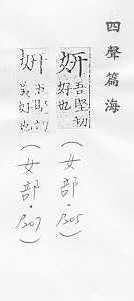 四聲篇海
姸 吾堅切 好也 （女部．1305）
姸 美好也 （女部．1307）